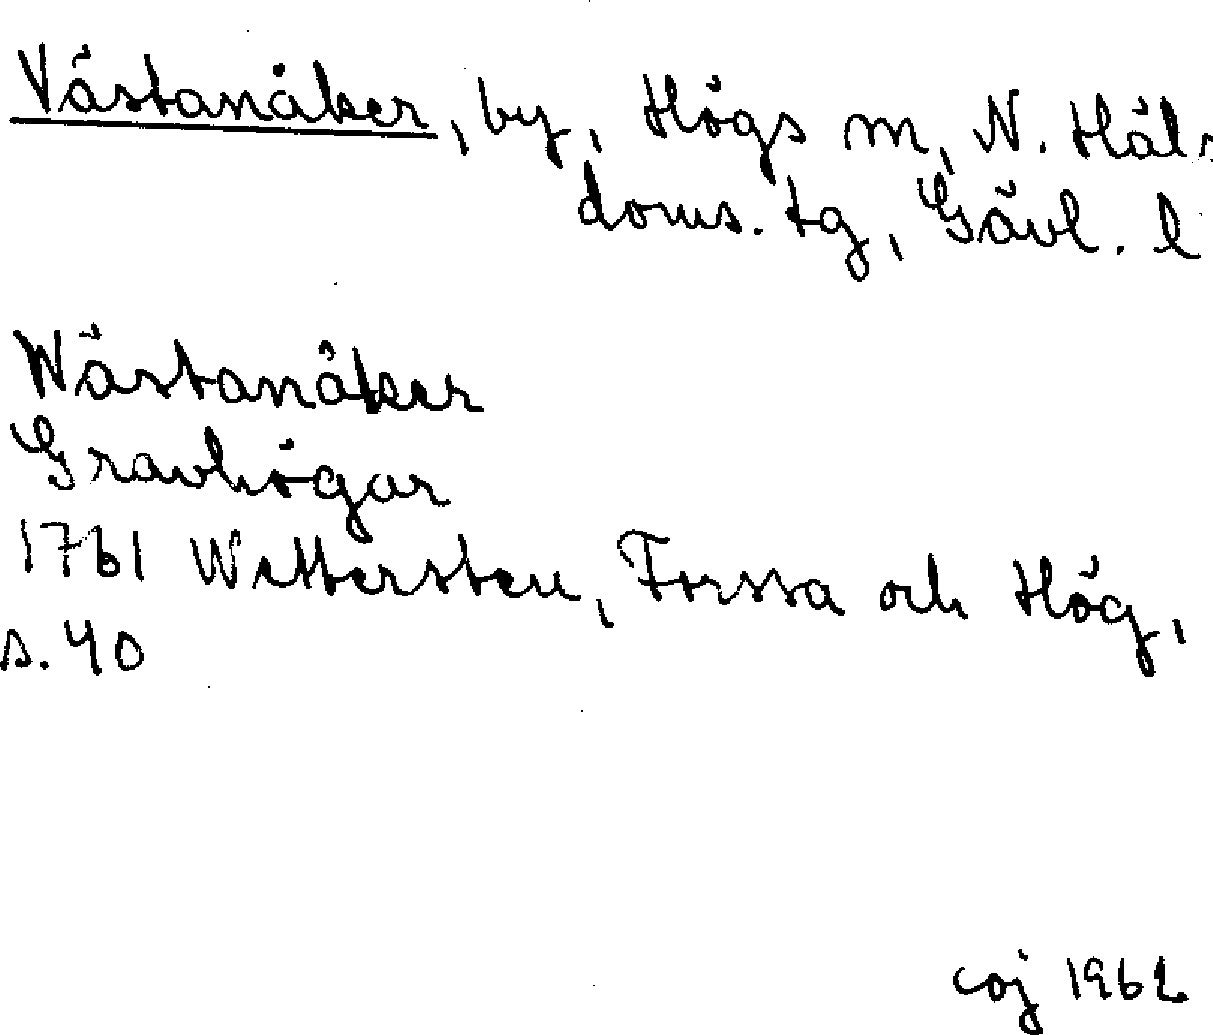 Västanåker, by, Högs m, N. Häls.
doms. tg, Gävl. l
Wästanåker
Gravhögar
1761 Wettersten, Forssa och Hög,
s. 40
coj 1962